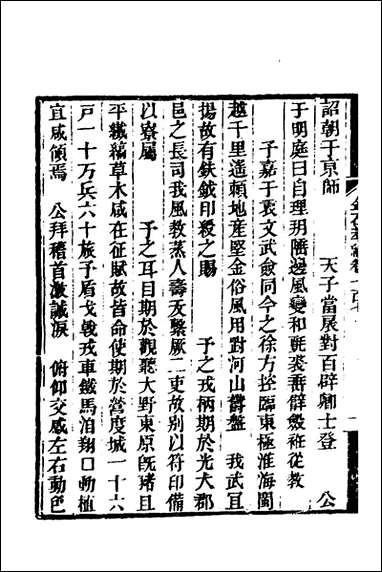 詔朝于京師　天子當展對百辟卿士登　公
于明庭曰自理玥隨邊風變和氈裘善辟黻袵從教
予嘉于衷文武僉同今之徐方控臨東極淮海閩
越千里遥賴地産堅金俗風用對河山欎盤　我武亘
揚故有鈇鉞印殺之賜　予之戎柄期於光大郡
邑之長司我風教蒸人壽夭繫厥二吏故別以符印備
以寮屬　予之耳目期於觀聽大野東原旣瀦且
平纎縞草木咸在征賦故皆命使期於營度城一十六
戶一十万兵六十旅予盾戈戟戎車鐵馬洎翔口動植
宜咸領焉　公拜稽首激誠淚　俯仰交感左右動色
金石萃編卷一百七